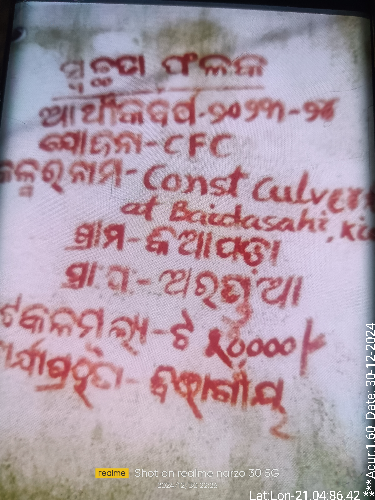 ସ୍ୱଚ୍ଛତା ଫଳକ
ଆର୍ଥିକବର୍ଷ-୨୦୨୩-୨୪
ଯୋଜନା-CFC
ନାମ-Const Culvert
at Baidasahi,
ଗ୍ରାମ-କିଆପଡ଼ା
ଗ୍ରା.ପ-ଅରଘୁଆ
ଟକଳମୂଲ୍ୟ-ଟ
କାର୍ଯ୍ୟାଗ୍ରହିତା-ବିଭାଗୀୟ
realme Shot on realme narzo 30 5G
Lat:Lon-21.04:86.42 *** Acur:1.60 Date: 30-12-2024